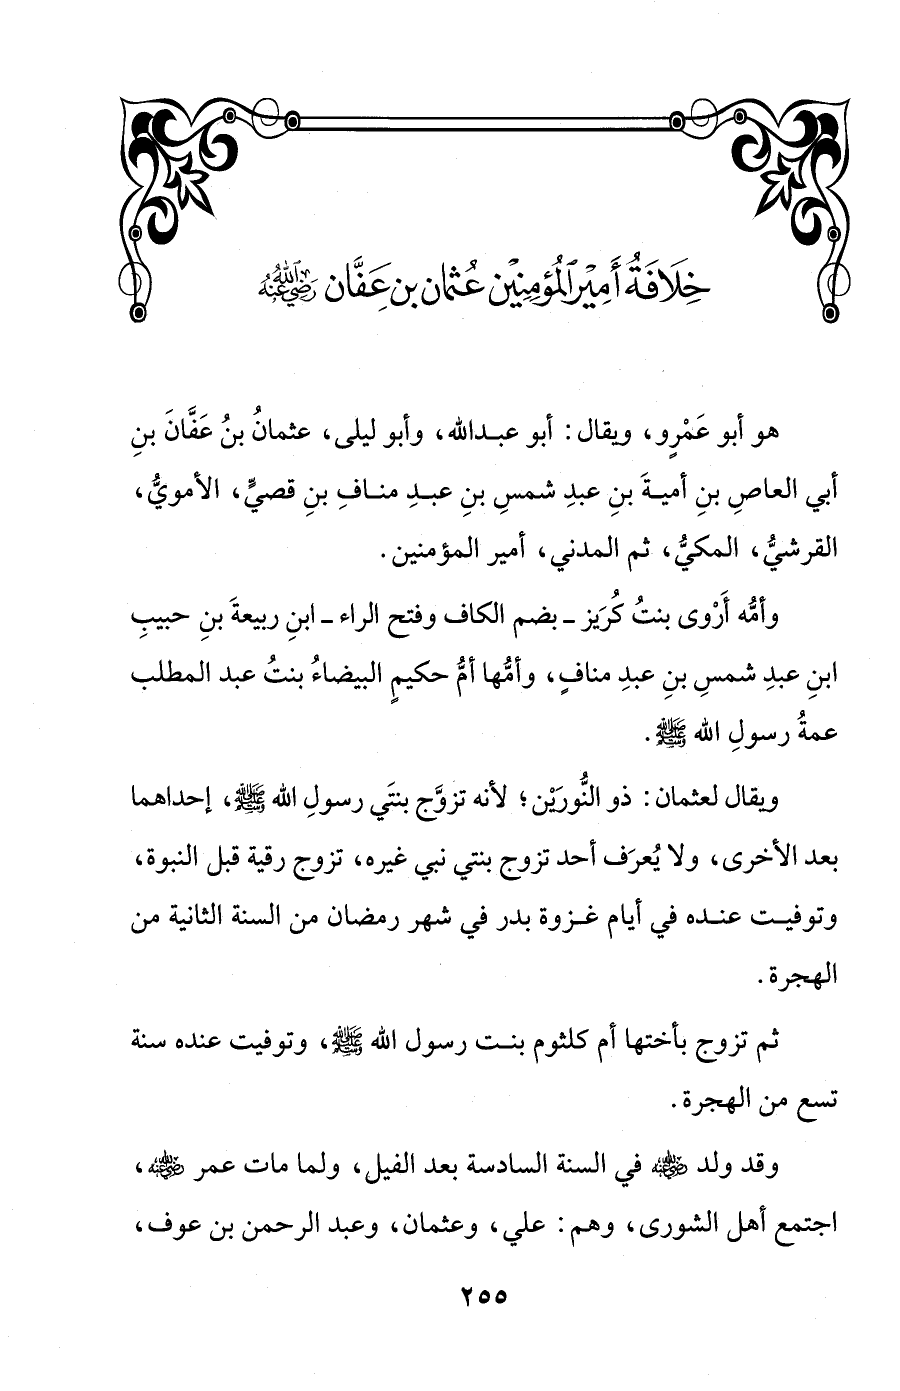 خِلَافَةُ أَمِيْرِ الْمُؤْمِنِيْن عُثْمَان بن عَفَّان رَضِيَ اللهُ عَنْهُ
هو أبو عَمْرٍو، ويقال: أبو عبدالله، وأبو ليلى، عثمانُ بنُ عَفَّانَ بنِ
أبي العاصِ بنِ أميةَ بنِ عبدِ شمسِ بنِ عبدِ منافِ بنِ قصيٍّ، الأمويُّ،
القرشيُّ، المكيُّ، ثم المدني، أمير المؤمنين.
وأمُّه أَرْوى بنتُ كُرَيز ـ بضم الكاف وفتح الراء ـ ابنِ ربيعةَ بنِ حبيبِ
ابنِ عبدِ شمسِ بنِ عبدِ منافٍ، وأمُّها أمُّ حكيمٍ البيضاءُ بنتُ عبد المطلب
عمةُ رسولِ الله ﷺ.
ويقال لعثمان: ذو النُّورَيْن؛ لأنه تزوَّج بنتَي رسولِ الله ﷺ، إحداهما
بعد الأخرى، ولا يُعرَف أحد تزوج بنتي نبي غيره، تزوج رقية قبل النبوة،
وتوفيت عنده في أيام غزوة بدر في شهر رمضان من السنة الثانية من
الهجرة.
ثم تزوج بأختها أم كلثوم بنت رسول الله ﷺ، وتوفيت عنده سنة
تسع من الهجرة.
وقد ولد رضي الله عنه في السنة السادسة بعد الفيل، ولما مات عمر رضي الله عنه،
اجتمع أهل الشورى، وهم: علي، وعثمان، وعبد الرحمن بن عوف،
٢٥٥